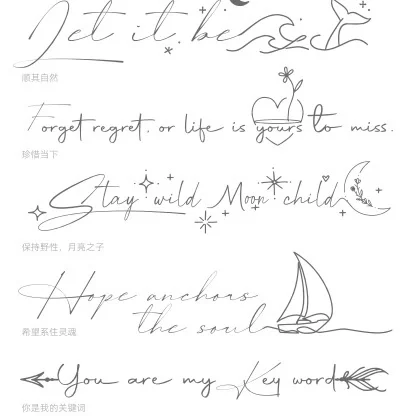 Let it be
顺其自然
Forget regret, or life is yours to miss.
珍惜当下
Stay wild Moon child
保持野性，月亮之子
Hope anchors
the soul
希望系住灵魂
You are my Key words
你是我的关键词